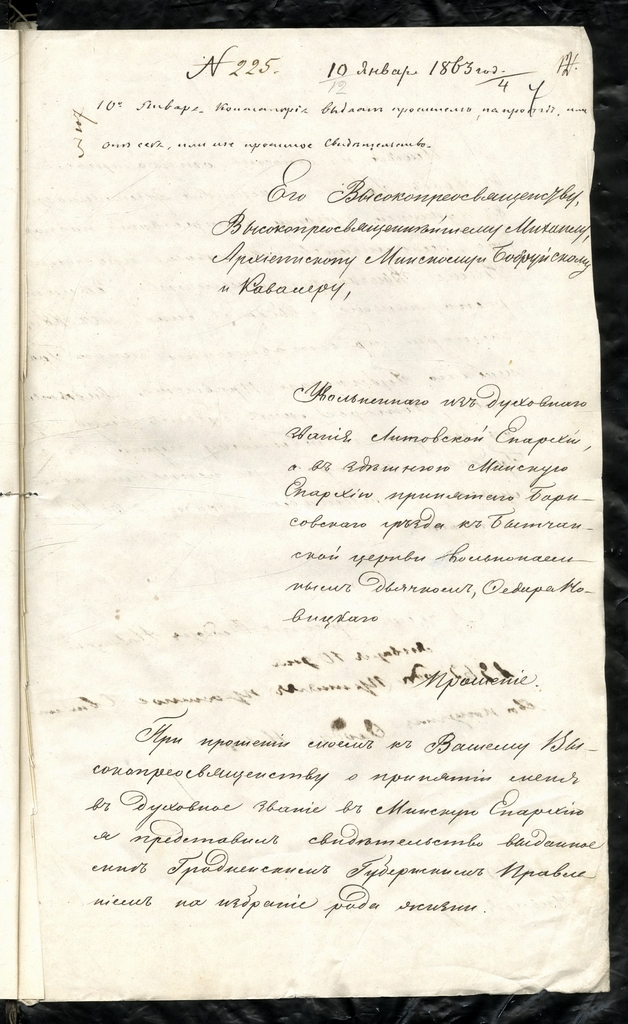 N 225. 10 Январ 1863 год. 14.
12 4 7
10го Января. Консисторія выдать просителю, на проездъ, или
Его Высокопреосвященству,
Высокопреосвященнѣйшему Михаилу,
Архіепископу Минскому и Бобруйскому
и Кавалеру,
Уволеннаго изъ духовнаго
званія Литовской Епархіи,
а въ здѣшнюю Минскую
Епархію принятаго Бори-
совскаго уѣзда къ Бытчан-
ской церкви вольнонаем-
нымъ дьячкомъ, Федора Ко-
вицкаго
Прошеніе.
При прошеніи моемъ къ Вашему Вы-
сокопреосвященству о принятіи меня
въ Духовное званіе въ Минскую Епархію
я представилъ свидѣтельство выданное
мнѣ Гродненскимъ Губернскимъ Правле-
ніемъ на избраніе рода жизни.